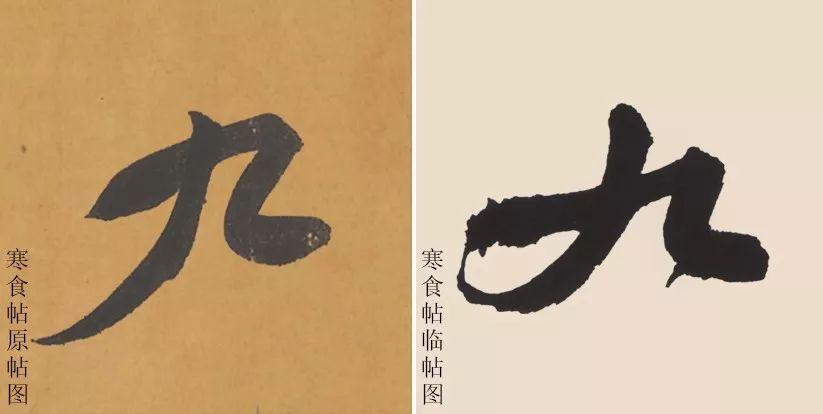 九
寒食帖原帖图
九
寒食帖临帖图